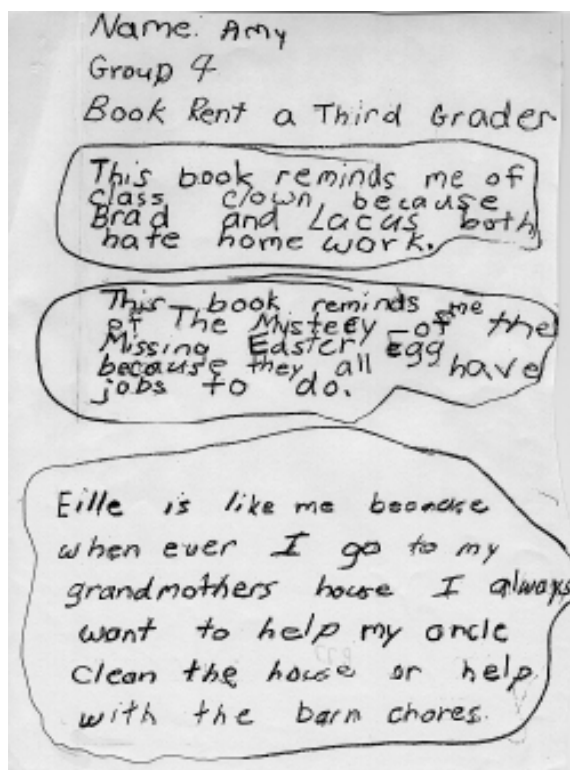 Name. Amy
Group 4
Book Rent a Third Grader
This book reminds me of
class clown because
Brad and Lucus both
hate home work.
This book reminds me
of The Mysteey of the
Missing Easter Egg
because they all have
jobs to do.
Eille is like me because
when ever I go to my
grandmothers house I always
want to help my oncle
clean the house or help
with the barn chores.